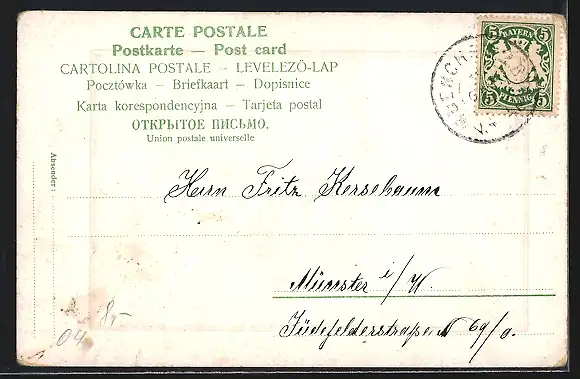 CARTE POSTALE
Postkarte — Post card
CARTOLINA POSTALE – LEVELEZÖ-LAP
Pocztówka – Briefkaart – Dopisnice
Karta korespondencyjna – Tarjeta postal
ОТКРЫТОЕ ПИСЬМО.
Union postale universelle
BAYERN
5 5
5 PFENNIG 5
MUENCHEN
Absender:
Herrn Fritz Kersebaum
Münster i/W.
Jüdefelderstraße N 69/a.
8,-
04